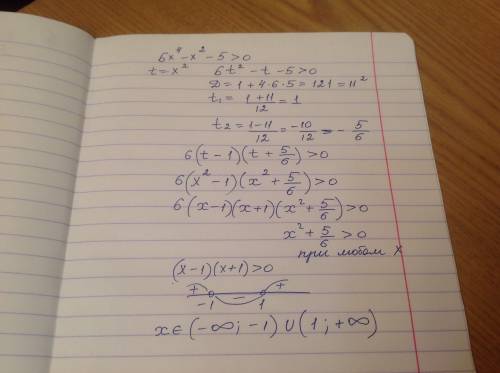 6x⁴ - x² - 5 > 0
t = x² 6t² - t - 5 > 0
D = 1 + 4·6·5 = 121 = 11²
t₁ = (1+11)/12 = 1
t₂ = (1-11)/12 = -10/12 = - 5/6
6(t-1)(t + 5/6) > 0
6(x² - 1)(x² + 5/6) > 0
6(x-1)(x+1)(x² + 5/6) > 0
x² + 5/6 > 0
при любом x
(x-1)(x+1) > 0
+ - +
-1 1
x ∈ (-∞; -1) ∪ (1; +∞)